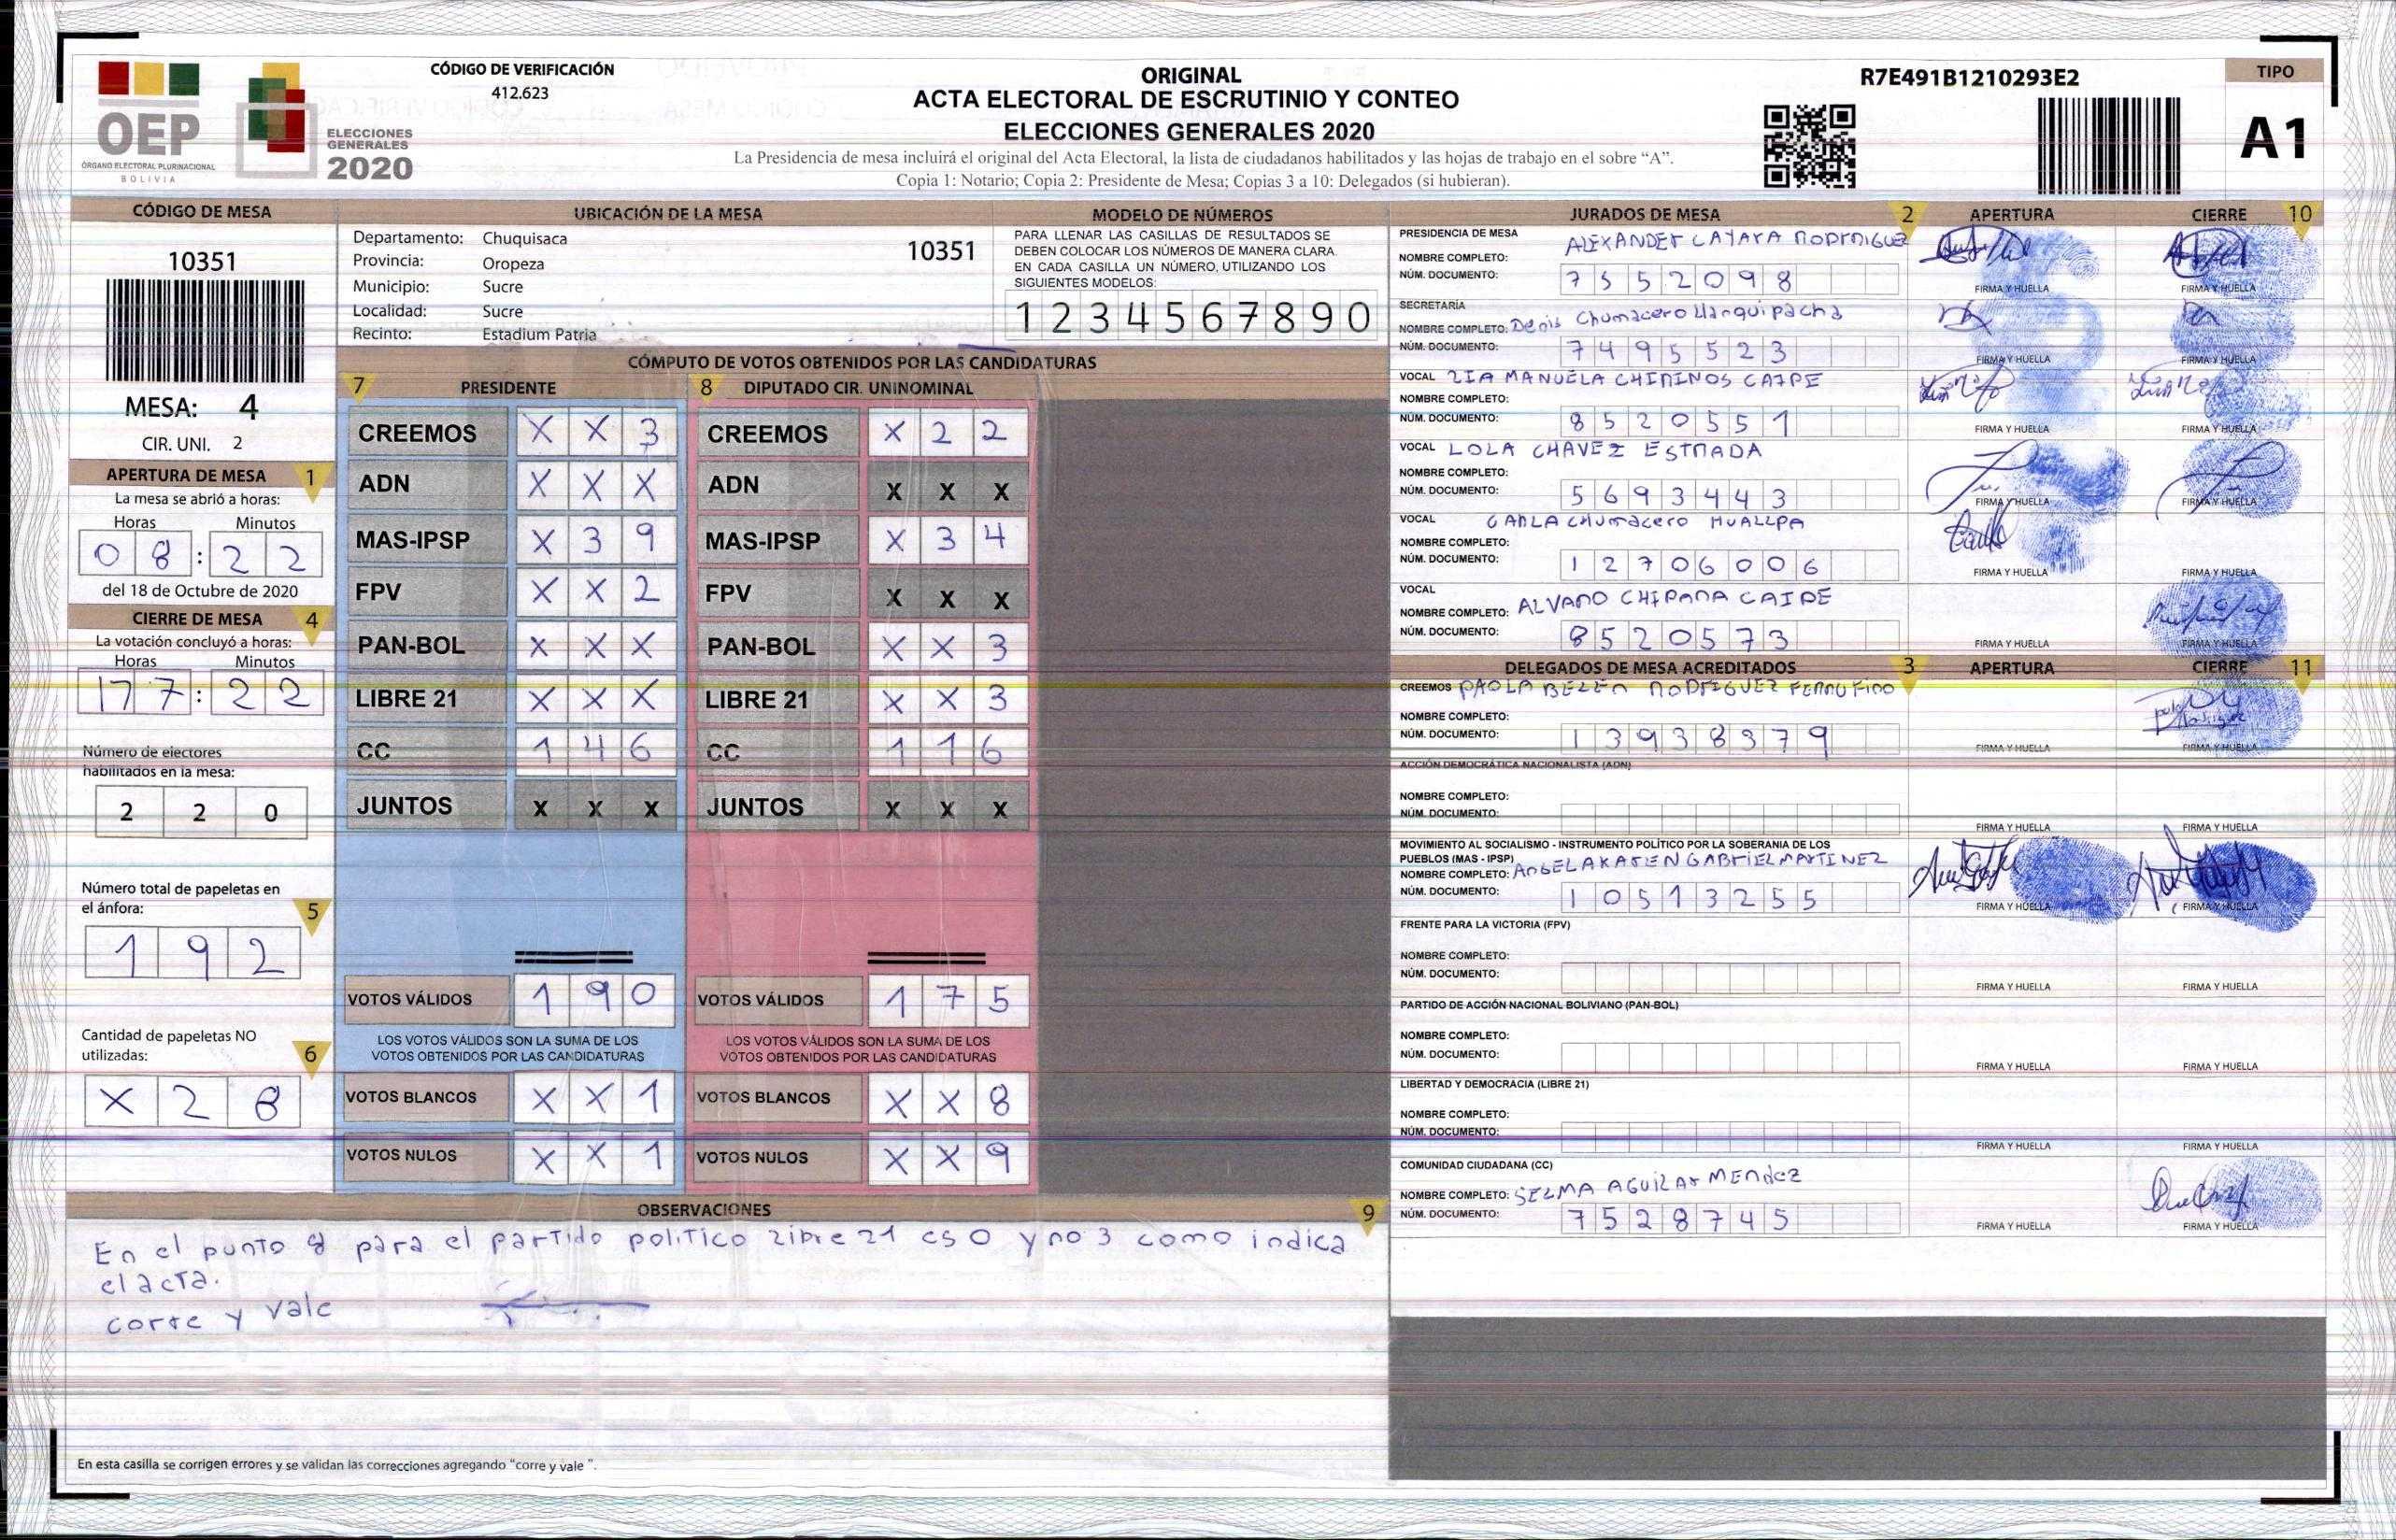 CÓDIGO DE VERIFICACIÓN
412.623
OEP
ÓRGANO ELECTORAL PLURINACIONAL
BOLIVIA
ELECCIONES
GENERALES
2020
ORIGINAL
ACTA ELECTORAL DE ESCRUTINIO Y CONTEO
ELECCIONES GENERALES 2020
La Presidencia de mesa incluirá el original del Acta Electoral, la lista de ciudadanos habilitados y las hojas de trabajo en el sobre “A”.
Copia 1: Notario; Copia 2: Presidente de Mesa; Copias 3 a 10: Delegados (si hubieran).
R7E491B1210293E2
TIPO
A1
CÓDIGO DE MESA
10351
MESA: 4
CIR. UNI. 2
APERTURA DE MESA 1
La mesa se abrió a horas:
Horas Minutos
0 8 : 2 2
del 18 de Octubre de 2020
CIERRE DE MESA 4
La votación concluyó a horas:
Horas Minutos
1 7 : 2 2
Número de electores
habilitados en la mesa:
2 2 0
Número total de papeletas en
el ánfora: 5
1 9 2
Cantidad de papeletas NO
utilizadas: 6
X 2 8
UBICACIÓN DE LA MESA
Departamento: Chuquisaca 10351
Provincia: Oropeza
Municipio: Sucre
Localidad: Sucre
Recinto: Estadium Patria
MODELO DE NÚMEROS
PARA LLENAR LAS CASILLAS DE RESULTADOS SE
DEBEN COLOCAR LOS NÚMEROS DE MANERA CLARA.
EN CADA CASILLA UN NÚMERO, UTILIZANDO LOS
SIGUIENTES MODELOS:
1 2 3 4 5 6 7 8 9 0
CÓMPUTO DE VOTOS OBTENIDOS POR LAS CANDIDATURAS
7 PRESIDENTE 8 DIPUTADO CIR. UNINOMINAL
CREEMOS X X 3 CREEMOS X 2 2
ADN X X X ADN X X X
MAS-IPSP X 3 9 MAS-IPSP X 3 4
FPV X X 2 FPV X X X
PAN-BOL X X X PAN-BOL X X 3
LIBRE 21 X X X LIBRE 21 X X 3
CC 1 4 6 CC 1 1 6
JUNTOS X X X JUNTOS X X X
VOTOS VÁLIDOS 1 9 0 VOTOS VÁLIDOS 1 7 5
LOS VOTOS VÁLIDOS SON LA SUMA DE LOS LOS VOTOS VÁLIDOS SON LA SUMA DE LOS
VOTOS OBTENIDOS POR LAS CANDIDATURAS VOTOS OBTENIDOS POR LAS CANDIDATURAS
VOTOS BLANCOS X X 1 VOTOS BLANCOS X X 8
VOTOS NULOS X X 1 VOTOS NULOS X X 9
OBSERVACIONES 9
En el punto 8 para el partido politico libre 21 es 0 y no 3 como indica
el acta.
corre y vale
En esta casilla se corrigen errores y se validan las correcciones agregando “corre y vale ”.
JURADOS DE MESA 2 APERTURA CIERRE 10
PRESIDENCIA DE MESA
NOMBRE COMPLETO: ALEXANDER RODRIGUEZ
NÚM. DOCUMENTO: 7 5 5 2 0 9 8
FIRMA Y HUELLA FIRMA Y HUELLA
SECRETARÍA
NOMBRE COMPLETO: Denis Chumacero Llanquipacha
NÚM. DOCUMENTO: 7 4 9 5 5 2 3
FIRMA Y HUELLA FIRMA Y HUELLA
VOCAL LIA MANUELA CHIRINOS CAIPE
NOMBRE COMPLETO:
NÚM. DOCUMENTO: 8 5 2 0 5 5 1
FIRMA Y HUELLA FIRMA Y HUELLA
VOCAL LOLA CHAVEZ ESTRADA
NOMBRE COMPLETO:
NÚM. DOCUMENTO: 5 6 9 3 4 4 3
FIRMA Y HUELLA FIRMA Y HUELLA
VOCAL CARLA Chumacero HUALLPA
NOMBRE COMPLETO:
NÚM. DOCUMENTO: 1 2 7 0 6 0 0 6
FIRMA Y HUELLA FIRMA Y HUELLA
VOCAL
NOMBRE COMPLETO: ALVARO CHIPANA CAIPE
NÚM. DOCUMENTO: 8 5 2 0 5 7 3
FIRMA Y HUELLA FIRMA Y HUELLA
DELEGADOS DE MESA ACREDITADOS 3 APERTURA CIERRE 11
CREEMOS PAOLA BELEN RODRIGUEZ FERRUFINO
NOMBRE COMPLETO:
NÚM. DOCUMENTO: 1 3 9 3 8 3 7 9
FIRMA Y HUELLA FIRMA Y HUELLA
ACCIÓN DEMOCRÁTICA NACIONALISTA (ADN)
NOMBRE COMPLETO:
NÚM. DOCUMENTO:
FIRMA Y HUELLA FIRMA Y HUELLA
MOVIMIENTO AL SOCIALISMO - INSTRUMENTO POLÍTICO POR LA SOBERANIA DE LOS
PUEBLOS (MAS - IPSP)
NOMBRE COMPLETO: ANGELA KAREN GABRIEL MARTINEZ
NÚM. DOCUMENTO: 1 0 5 1 3 2 5 5
FIRMA Y HUELLA FIRMA Y HUELLA
FRENTE PARA LA VICTORIA (FPV)
NOMBRE COMPLETO:
NÚM. DOCUMENTO:
FIRMA Y HUELLA FIRMA Y HUELLA
PARTIDO DE ACCIÓN NACIONAL BOLIVIANO (PAN-BOL)
NOMBRE COMPLETO:
NÚM. DOCUMENTO:
FIRMA Y HUELLA FIRMA Y HUELLA
LIBERTAD Y DEMOCRACIA (LIBRE 21)
NOMBRE COMPLETO:
NÚM. DOCUMENTO:
FIRMA Y HUELLA FIRMA Y HUELLA
COMUNIDAD CIUDADANA (CC)
NOMBRE COMPLETO: SELMA AGUILAR MENDEZ
NÚM. DOCUMENTO: 7 5 2 8 7 4 5
FIRMA Y HUELLA FIRMA Y HUELLA